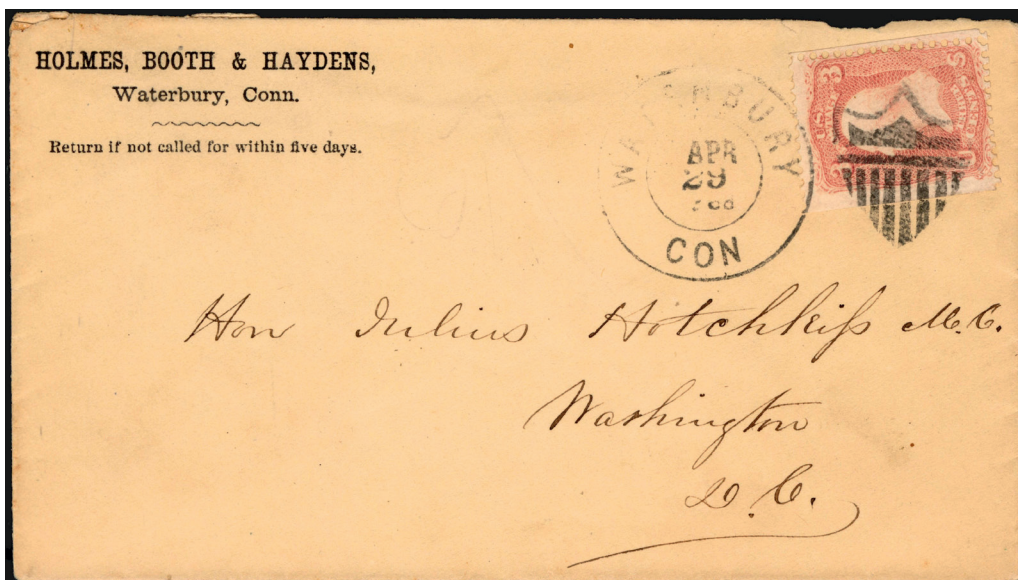 HOLMES, BOOTH & HAYDENS,
Waterbury, Conn.
Return if not called for within five days.
WATERBURY
APR
29
CON
3
U.S.
Hon Julius Hotchkiſs M.C.
Washington
D.C.